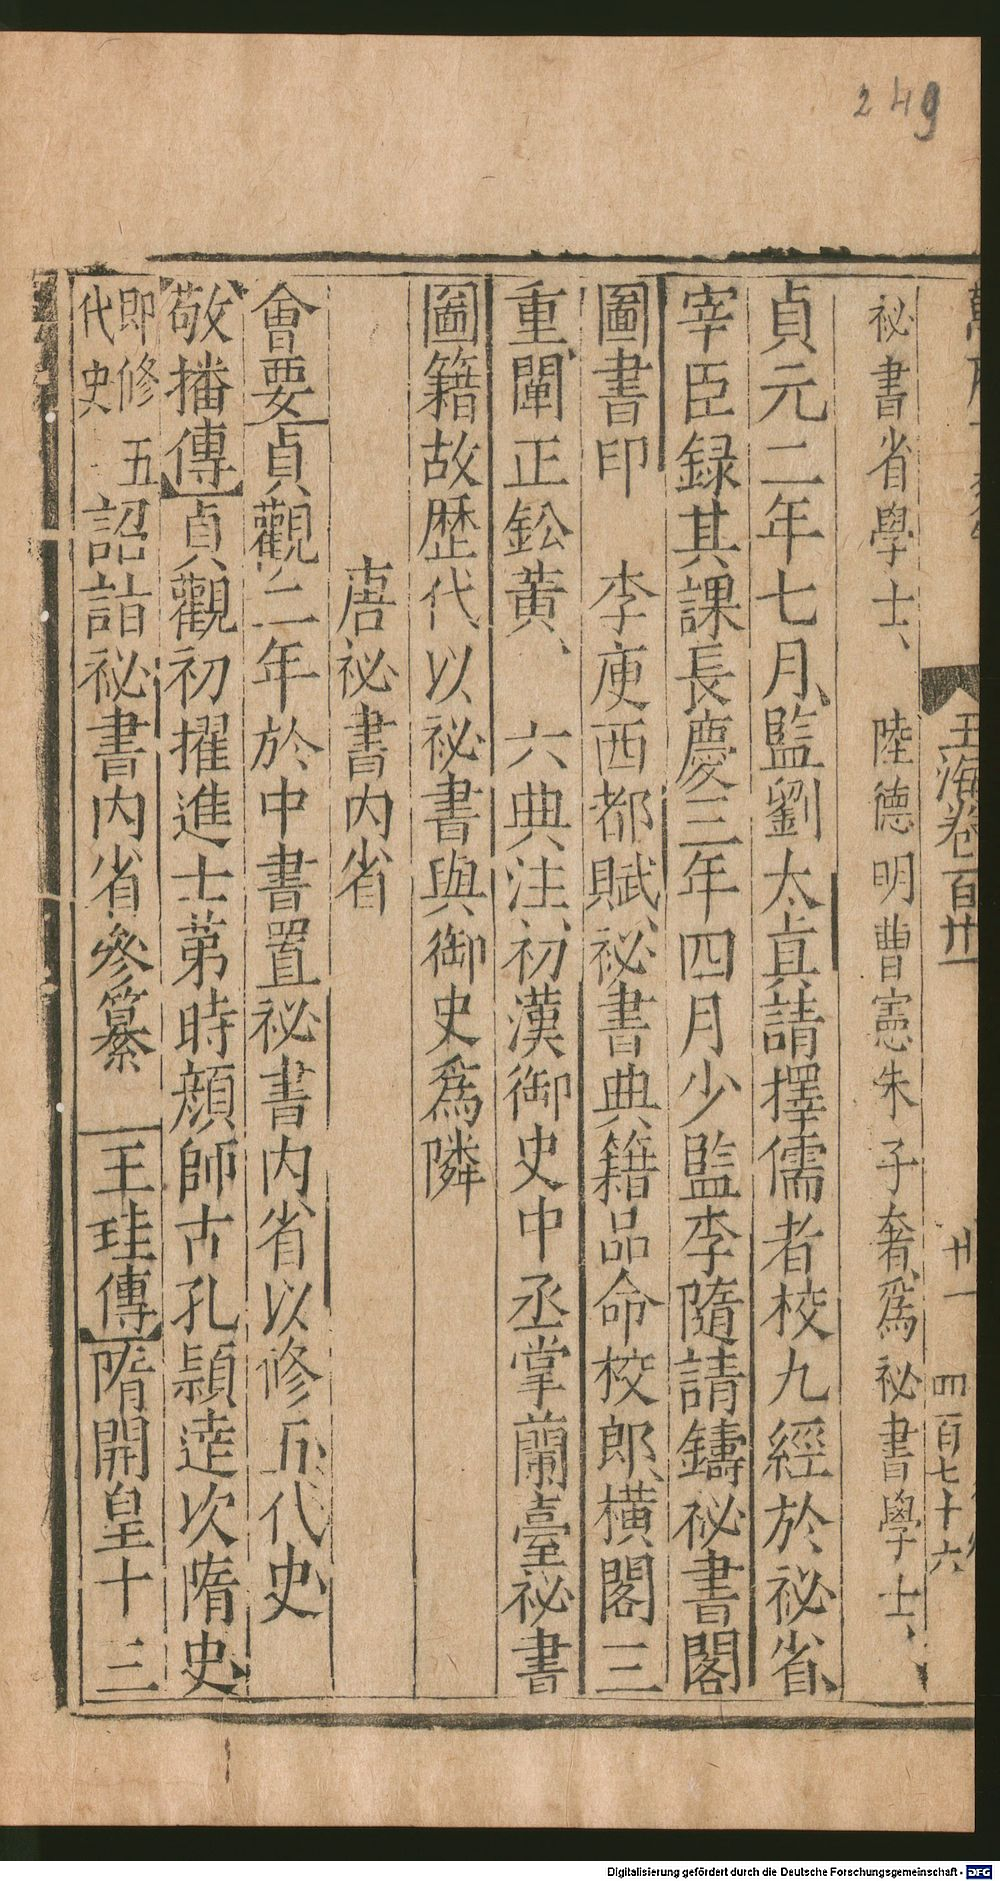 249
玉海卷百廿一
廿一
四百七十六
祕書省學士、陸德明曹憲朱子奢、爲祕書學士、
貞元二年七月、監劉太真請擇儒者校九經於祕省、
宰臣録其課長慶三年四月少監李隨請鑄祕書閣
圖書印 李庾西都賦、祕書典籍品命校郎、橫閣三
重、闡正鈆黄、 六典注、初漢御史中丞掌蘭臺祕書
圖籍故歴代以祕書與御史爲隣
唐祕書内省
會要貞觀二年於中書置祕書内省以修五代史
敬播傳貞觀初擢進士第時顔師古孔頴逹次隋史
即修五代史詔詣祕書内省參纂 王珪傳隋開皇十三
Digitalisierung gefördert durch die Deutsche Forschungsgemeinschaft - DFG